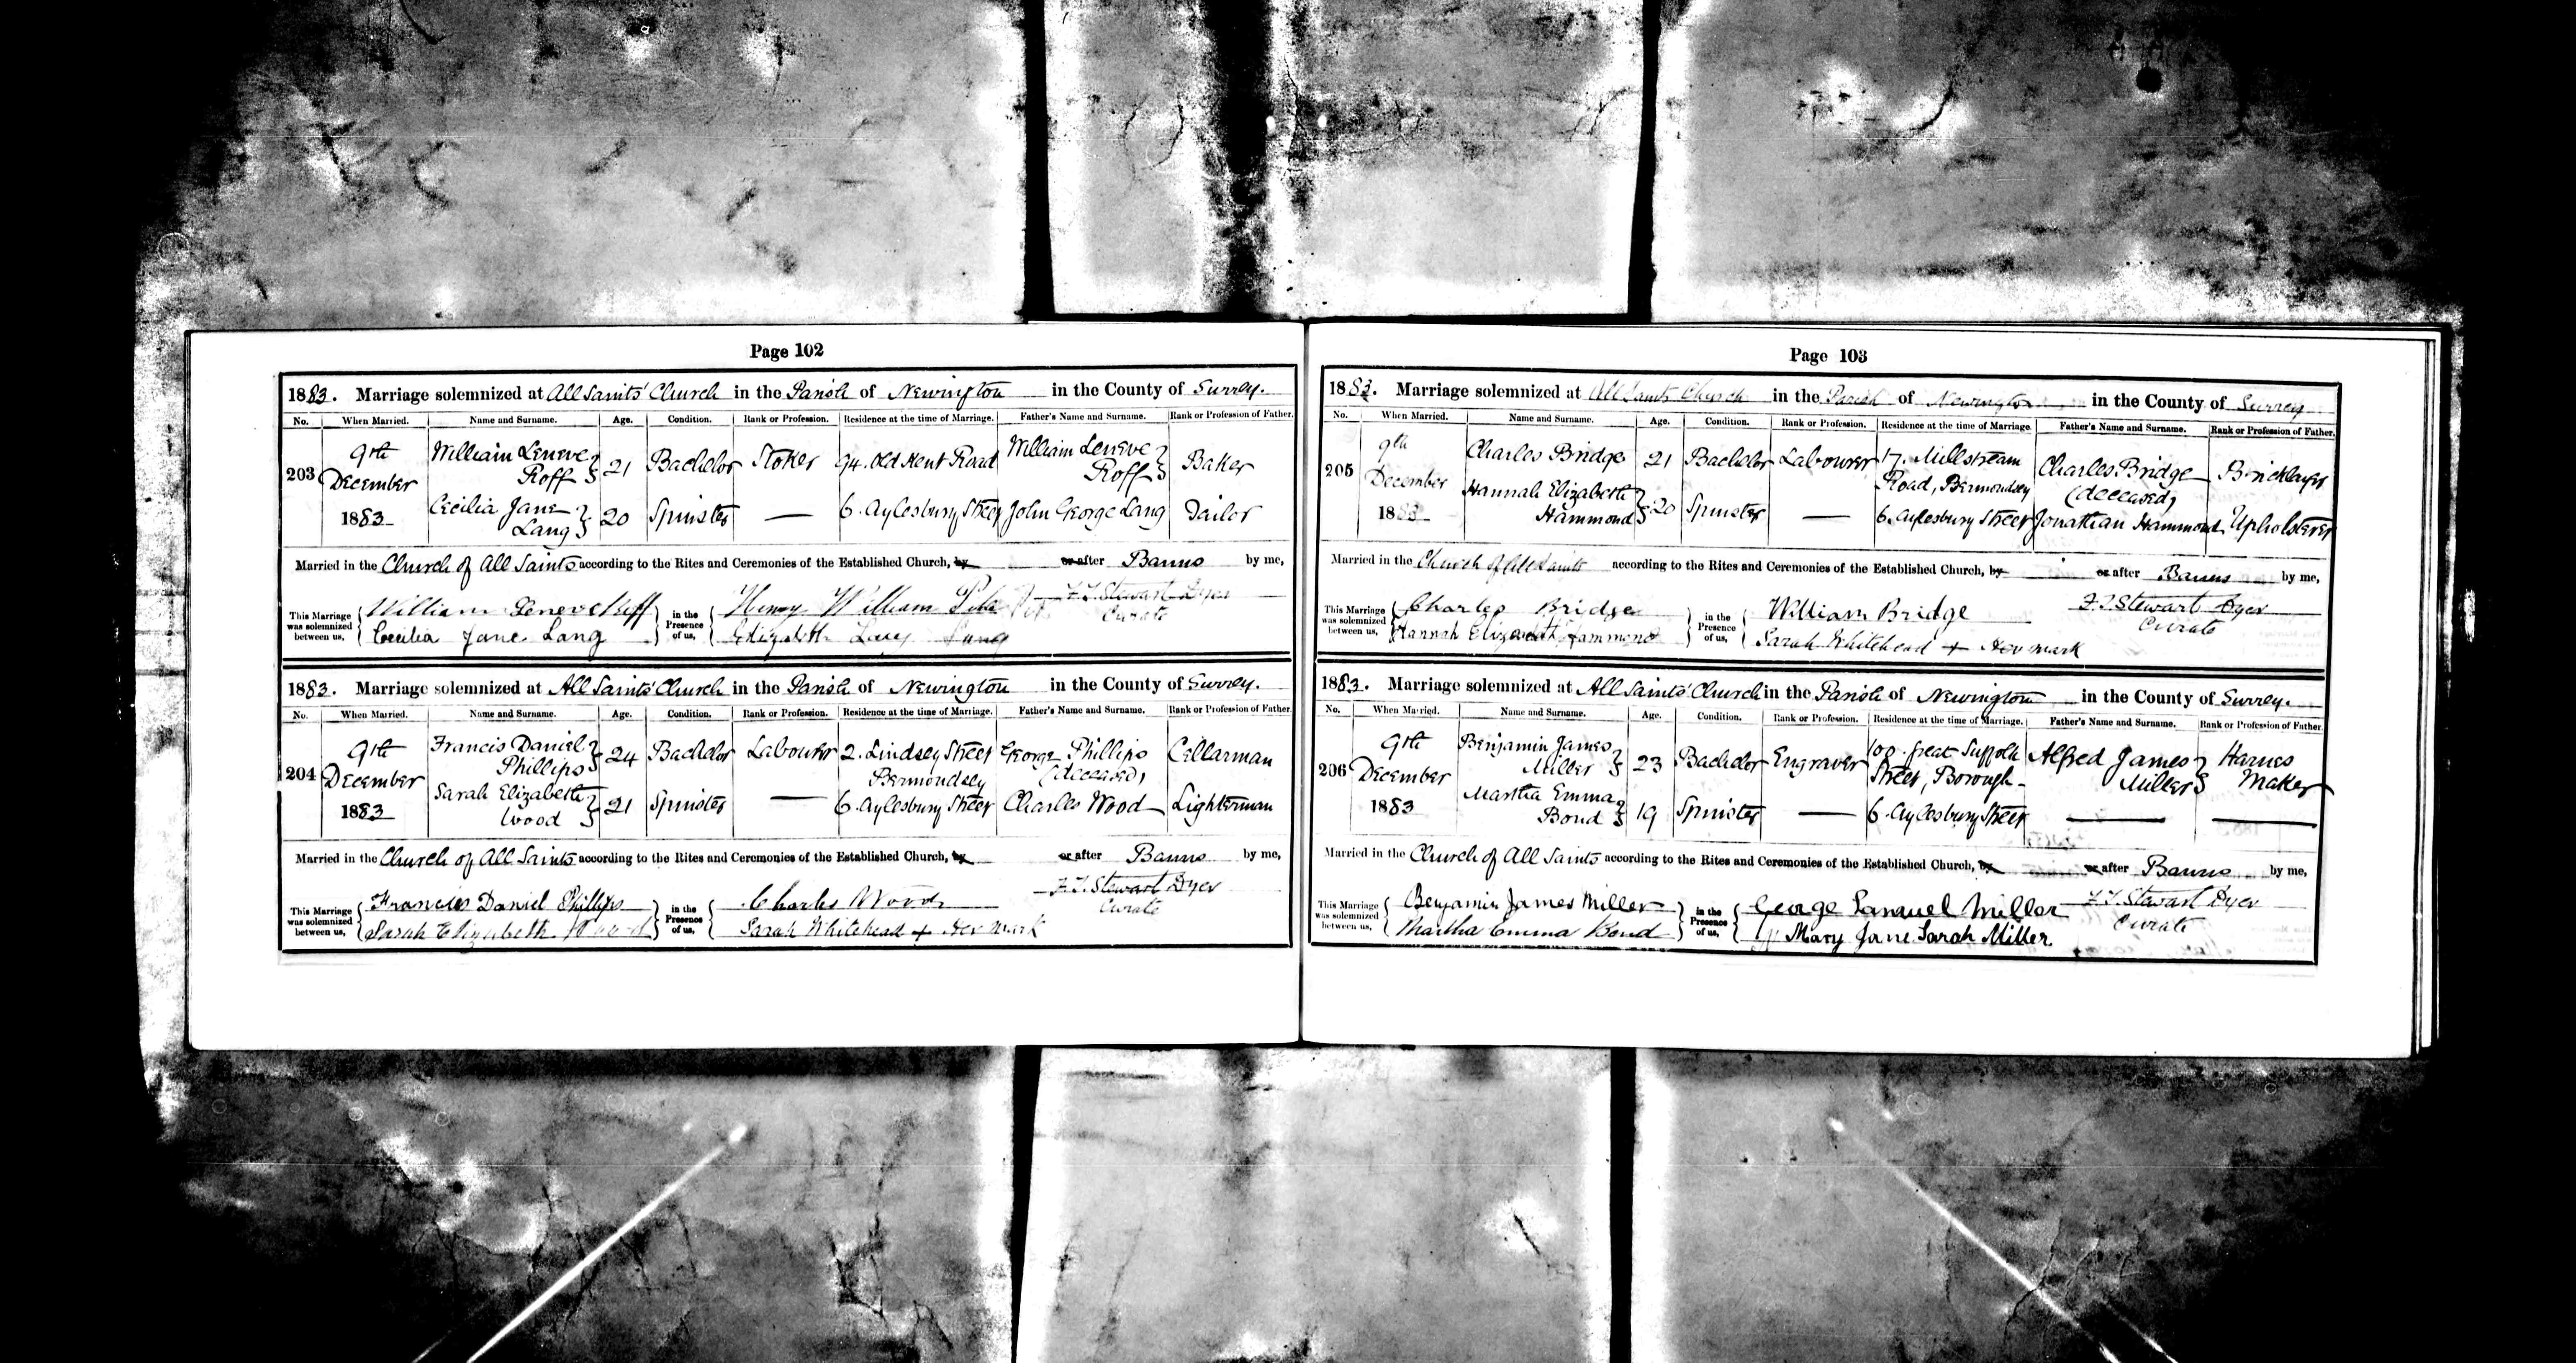 Page 102
1883. Marriage solemnized at All Saints' Church in the Parish of Newington in the County of Surrey.
No. When Married. Name and Surname. Age. Condition. Rank or Profession. Residence at the time of Marriage. Father's Name and Surname. Rank or Profession of Father.
203 9th December 1883 William Leneve Roff 21 Bachelor Stoker 94. Old Kent Road William Leneve Roff Baker
Cecilia Jane Lang 20 Spinster — 6. Aylesbury Street John George Lang Tailor
Married in the Church of All Saints according to the Rites and Ceremonies of the Established Church, by or after Banns by me,
This Marriage was solemnized between us, William Leneve Roff in the Presence of us, Henry William F. J. Stewart Dyer
Cecilia Jane Lang Elizabeth Lucy Lang Curate
1883. Marriage solemnized at All Saints' Church in the Parish of Newington in the County of Surrey.
No. When Married. Name and Surname. Age. Condition. Rank or Profession. Residence at the time of Marriage. Father's Name and Surname. Rank or Profession of Father.
204 9th December 1883 Francis Daniel Phillips 24 Bachelor Labourer 2. Lindsey Street Bermondsey George Phillips (deceased) Cellarman
Sarah Elizabeth Wood 21 Spinster — 6. Aylesbury Street Charles Wood Lighterman
Married in the Church of All Saints according to the Rites and Ceremonies of the Established Church, by or after Banns by me,
This Marriage was solemnized between us, Francis Daniel Phillips in the Presence of us, Charles Wood F. J. Stewart Dyer
Sarah Elizabeth Wood Sarah Whitehead + Her mark Curate
Page 103
1883. Marriage solemnized at All Saints Church in the Parish of Newington in the County of Surrey
No. When Married. Name and Surname. Age. Condition. Rank or Profession. Residence at the time of Marriage. Father's Name and Surname. Rank or Profession of Father.
205 9th December 1883 Charles Bridge 21 Bachelor Labourer 17. Millstream Road, Bermondsey Charles Bridge (deceased) Bricklayer
Hannah Elizabeth Hammond 20 Spinster — 6. Aylesbury Street Jonathan Hammond Upholsterer
Married in the Church of All Saints according to the Rites and Ceremonies of the Established Church, by or after Banns by me,
This Marriage was solemnized between us, Charles Bridge in the Presence of us, William Bridge F. J. Stewart Dyer
Hannah Elizabeth Hammond Sarah Whitehead + Her mark Curate
1883. Marriage solemnized at All Saints' Church in the Parish of Newington in the County of Surrey.
No. When Married. Name and Surname. Age. Condition. Rank or Profession. Residence at the time of Marriage. Father's Name and Surname. Rank or Profession of Father.
206 9th December 1883 Benjamin James Miller 23 Bachelor Engraver 100. Great Suffolk Street, Borough Alfred James Miller Harnes Maker
Martha Emma Bond 19 Spinster — 6. Aylesbury Street — —
Married in the Church of All Saints according to the Rites and Ceremonies of the Established Church, by or after Banns by me,
This Marriage was solemnized between us, Benjamin James Miller in the Presence of us, George Samuel Miller F. J. Stewart Dyer
Martha Emma Bond Mary Jane Sarah Miller Curate